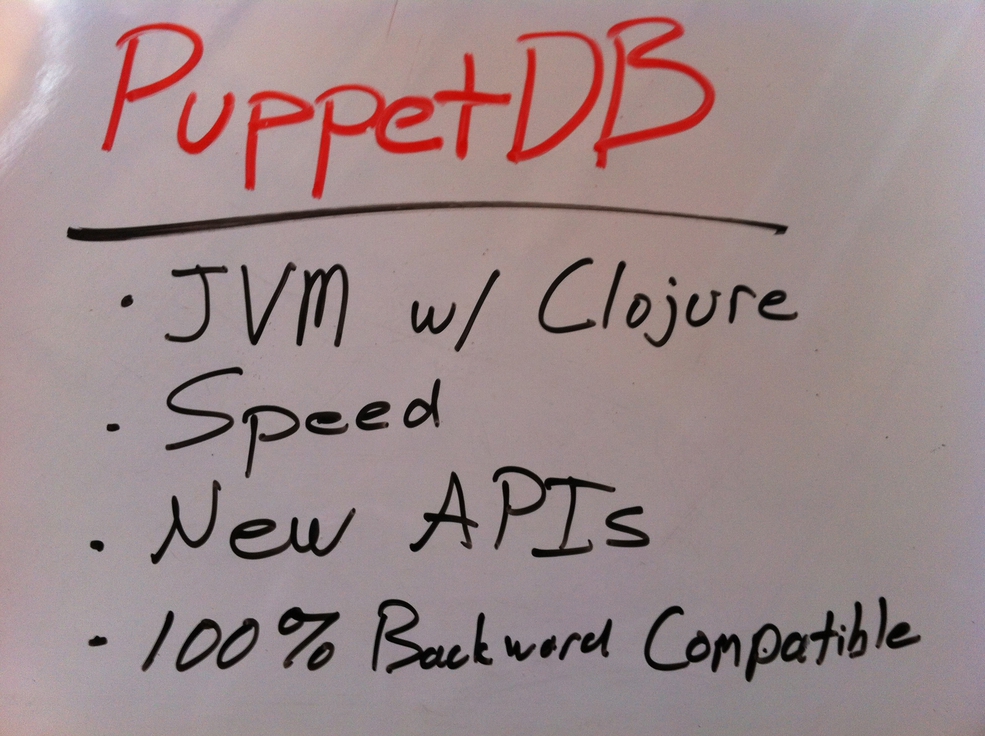 PuppetDB
· JVM w/ Clojure
· Speed
· New APIs
· 100% Backward Compatible